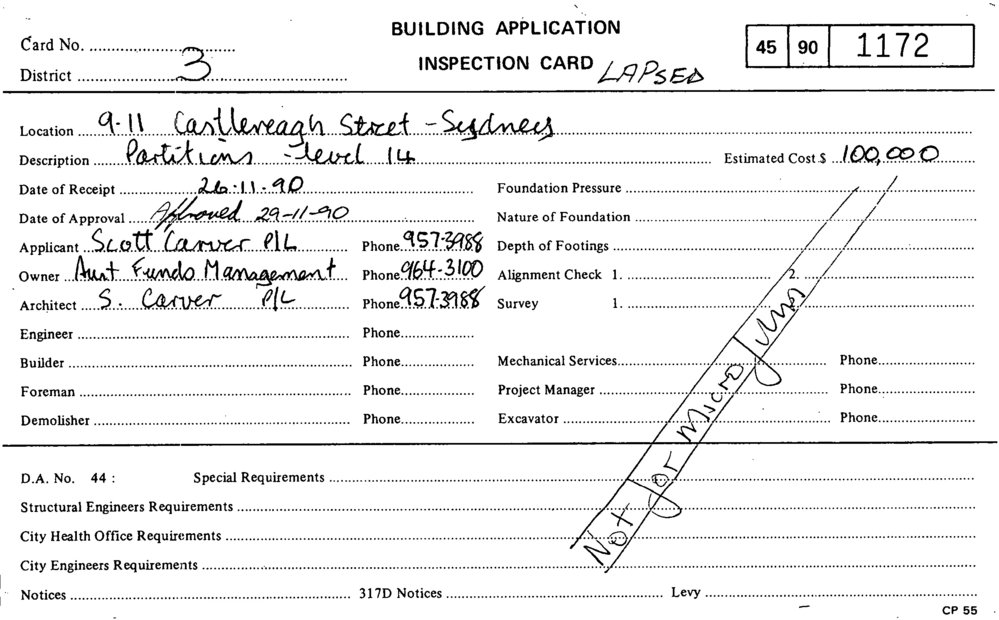 BUILDING APPLICATION
INSPECTION CARD LAPSED
45 90 1172
Card No.
District 3
Location 9-11 Castlereagh Street - Sydney
Description Partitions - level 14 Estimated Cost $ 100,000
Date of Receipt 26.11.90 Foundation Pressure
Date of Approval Approved 29-11-90 Nature of Foundation
Applicant Scott Carver P/L Phone 957-3988 Depth of Footings
Owner Aust Funds Management Phone 964-3100 Alignment Check 1. 2.
Architect S. Carver P/L Phone 957-3988 Survey 1.
Engineer Phone
Builder Phone Mechanical Services Phone
Foreman Phone Project Manager Phone
Demolisher Phone Excavator Phone
Not for Micro
D.A. No. 44 : Special Requirements
Structural Engineers Requirements
City Health Office Requirements
City Engineers Requirements
Notices 317D Notices Levy
CP 55